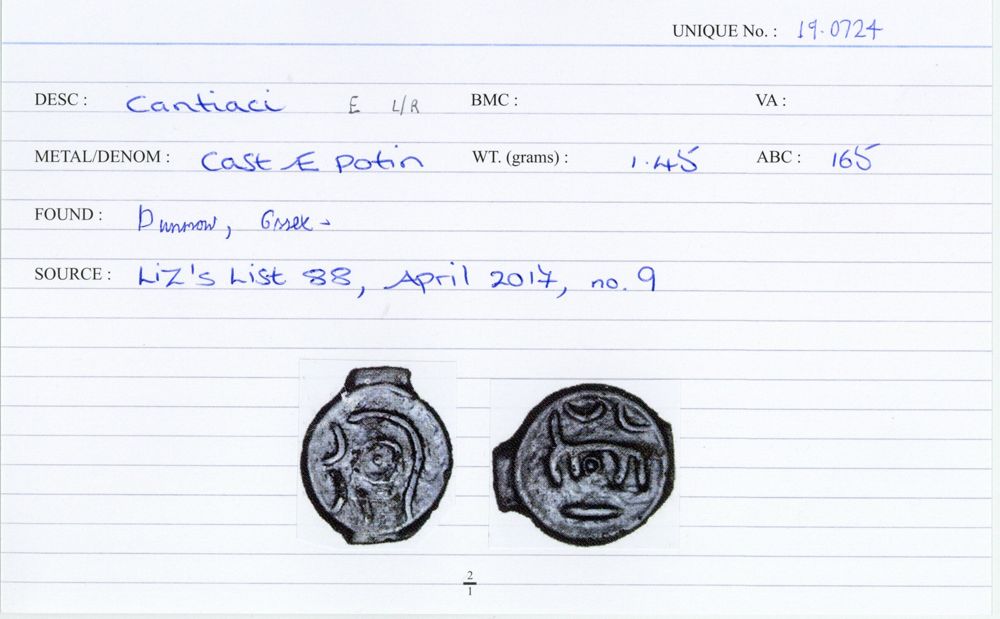 UNIQUE No. : 19.0724
DESC : Cantiaci E L/R BMC : VA :
METAL/DENOM : Cast Æ Potin WT. (grams) : 1.45 ABC : 165
FOUND : Dunmow, Essex -
SOURCE : Liz's List 88, April 2017, no. 9
2
1